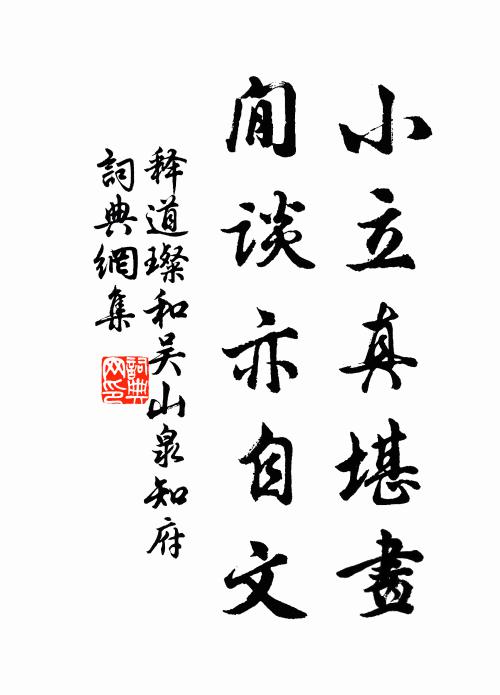 小立真堪畫
閒談亦自文
释道璨和吴山泉知府
詞典網集
詞典网印